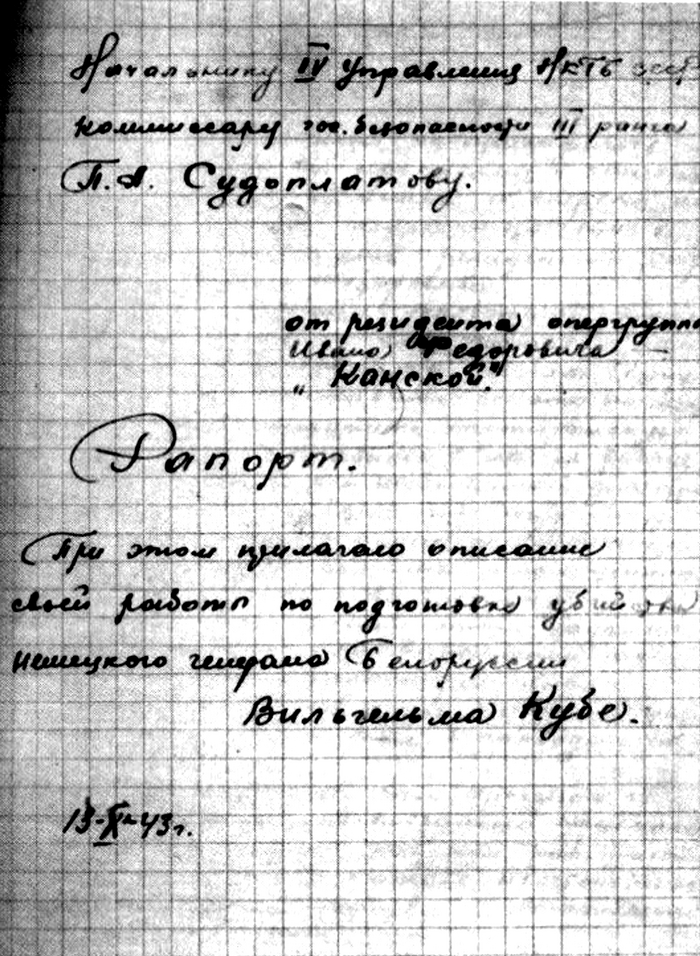 Начальнику IV Управления НКГБ ссср
комиссару гос. безопасности III ранга
П. А. Судоплатову.
от резидента опергруппы
Ивана Федоровича
„Канской".
Рапорт.
При этом прилагаю описание
своей работы по подготовке убийства
немецкого генерала Белоруссии
Вильгельма Кубе.
43 г.